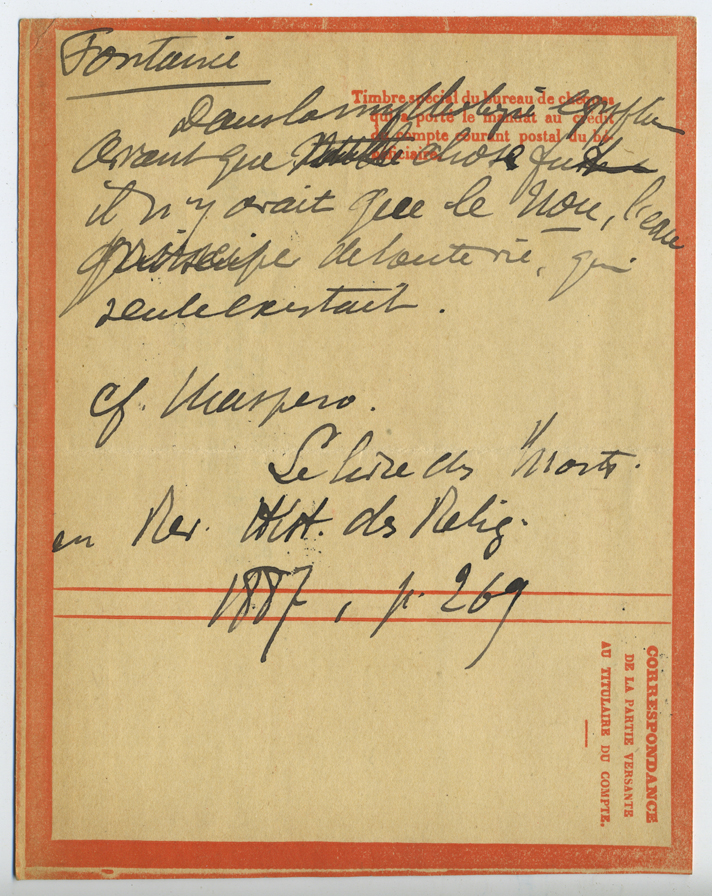 Fontaine
Timbre spécial du bureau de chèques
qui a porté le mandat au crédit
du compte courant postal du bé-
néficiaire.
Dans la mythologie égyptien
avant que chose fut
il n'y avait que le Nou, l'eau
principe de toute vie, qui
seule existait.
cf. Maspero.
Le livre des Morts.
en Rev. Hist. des Relig.
1887, p. 269
CORRESPONDANCE
DE LA PARTIE VERSANTE
AU TITULAIRE DU COMPTE.